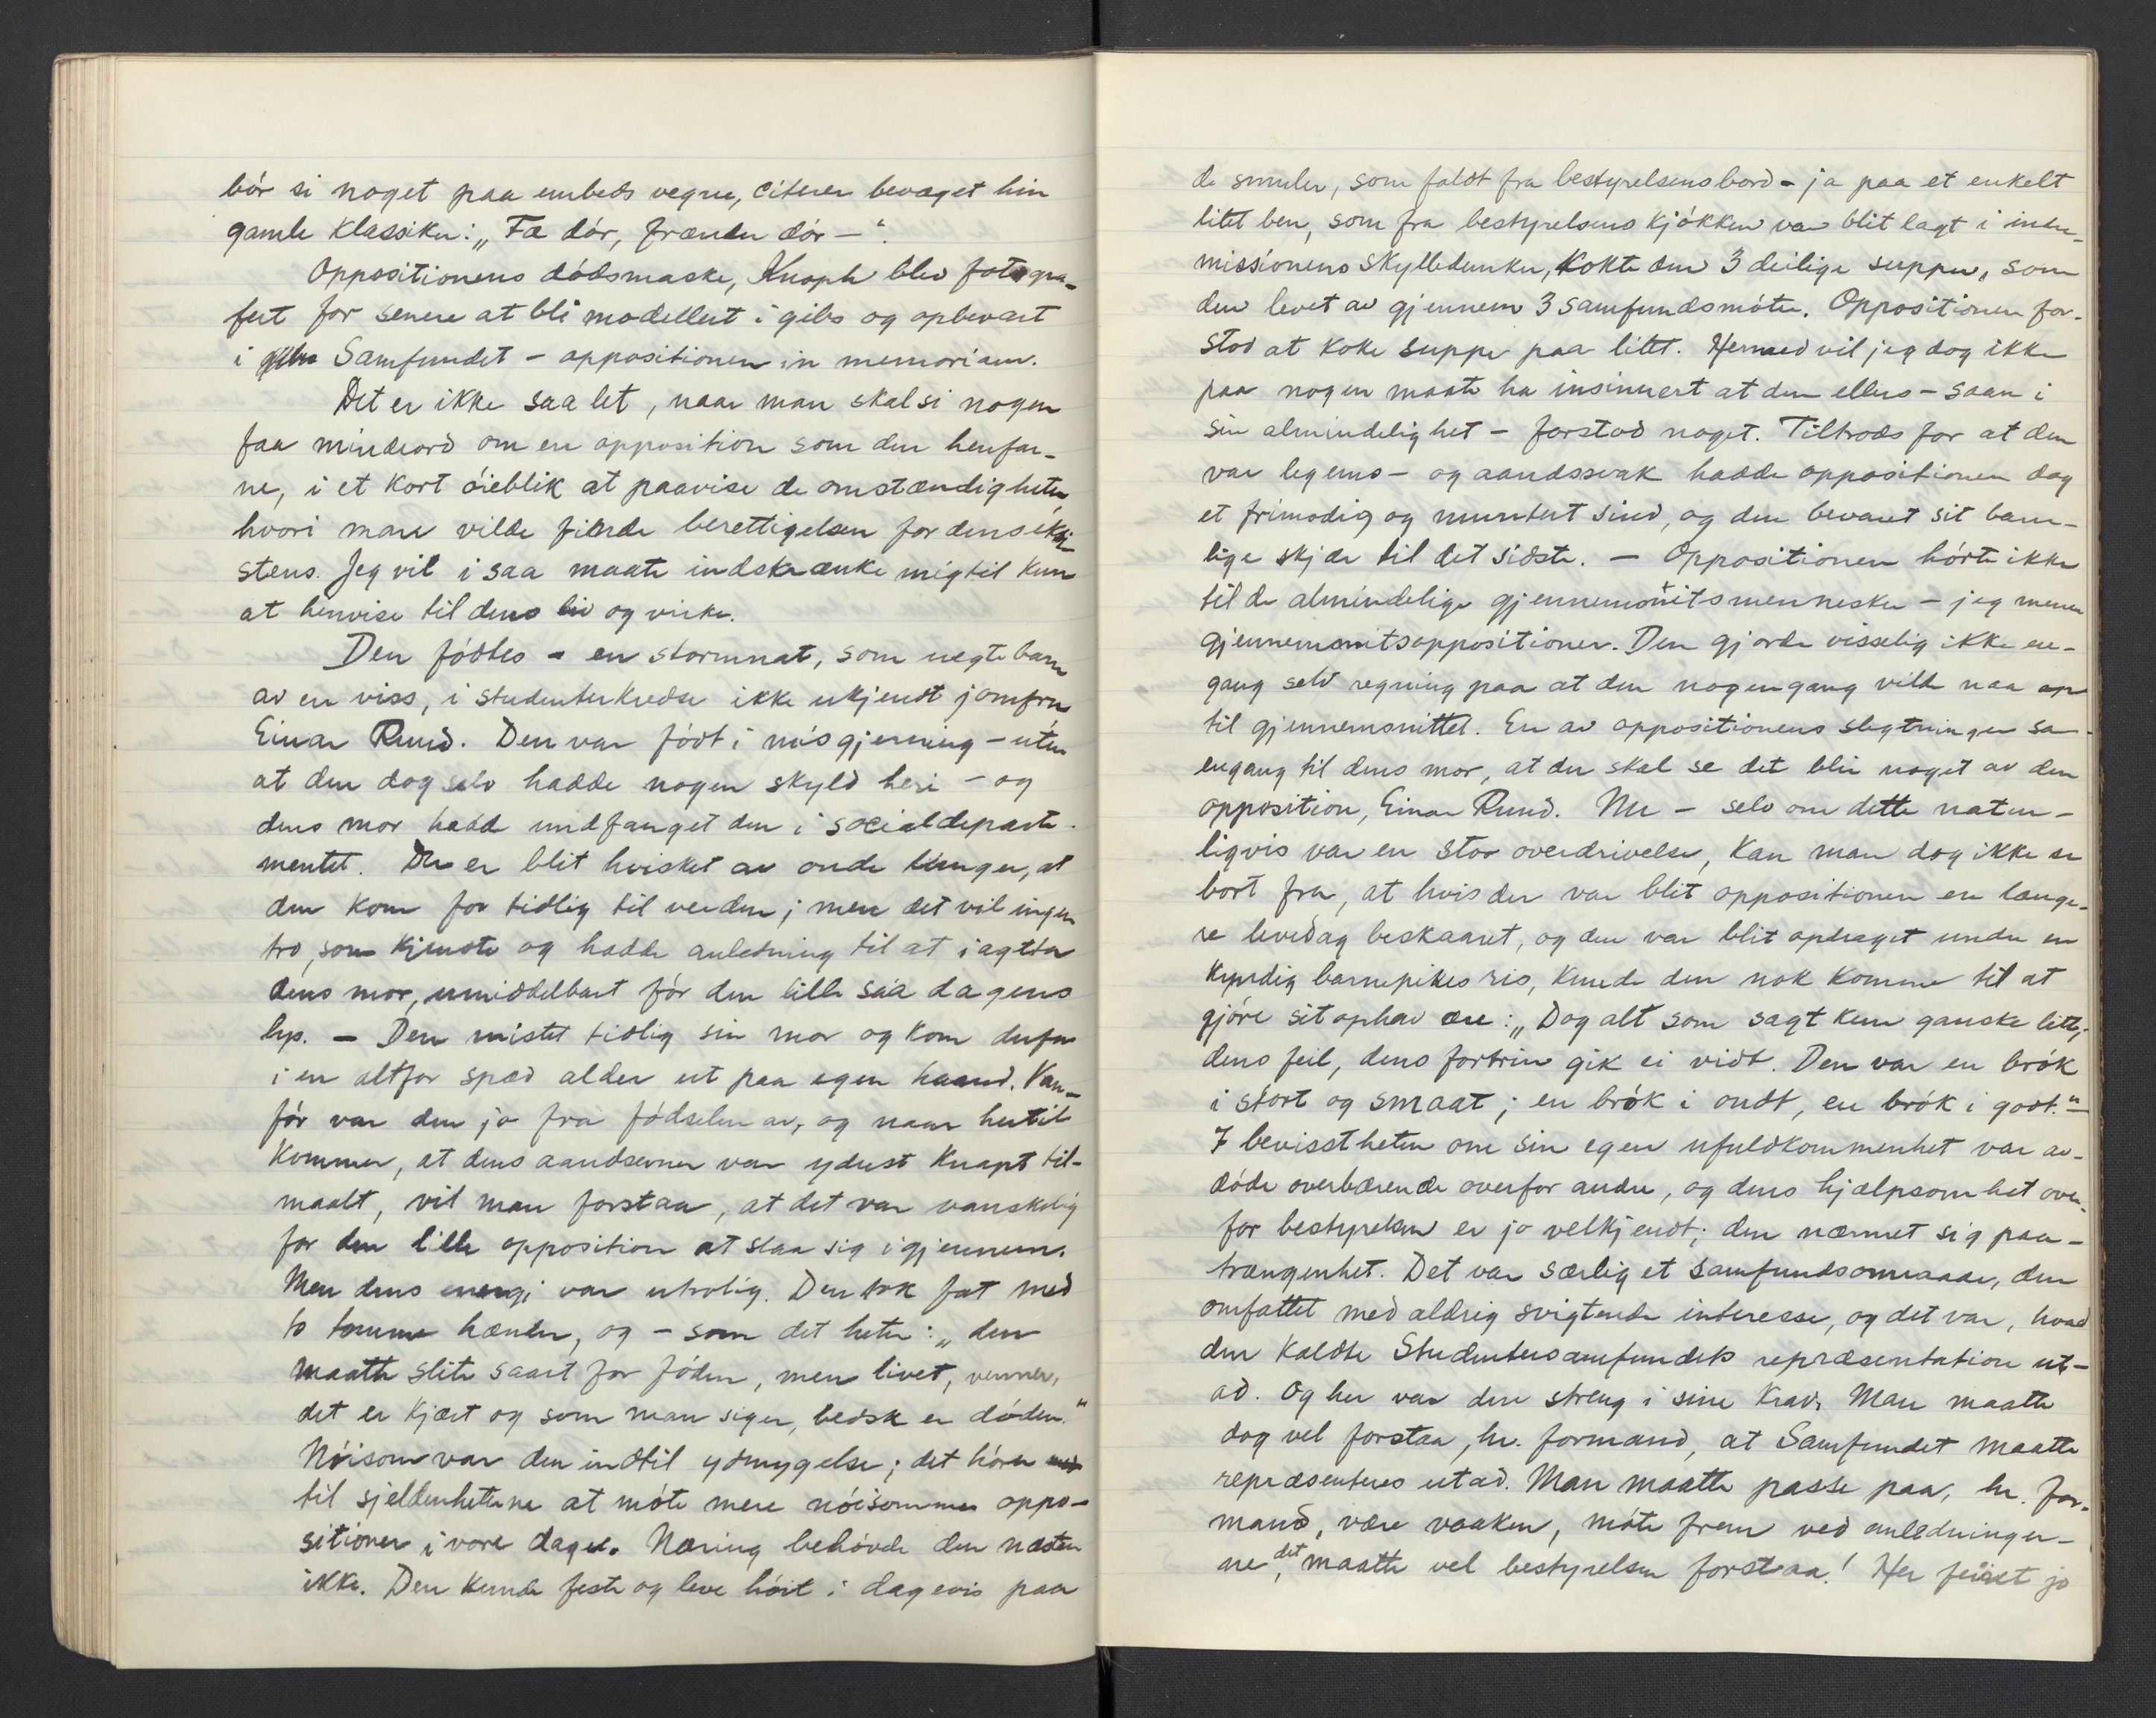 bór si noget paa embeds vegne, citerer bevæget hin
gamle klassiker: „Fæ dör, frænder dör —“.
Oppositionens dödsmaske, Knoph blev fotogra-
fert for senere at bli modellert i gibs og opbevart
i Samfundet – oppositionen in memoriam.
Det er ikke saa let, naar man skal si nogen
faa mindeord om en opposition som den henfar-
ne, i et kort öieblik at paavise de omstændigheter
hvori man vilde finde berettigelsen for dens eksi-
stens. Jeg vil i saa maate indskrænke mig til kun
at henvise til dens liv og virke.
Den födtes – en stormnat, som uegte barn
av en viss, i studenterkredse ikke ukjendt jomfru
Einar Ruud. Den var födt i misgjerning – uten
at den dog selv hadde nogen skyld heri – og
dens mor hadde undfanget den i socialdeparte-
mentet. Der er blit hvisket av onde tunger, at
den kom for tidlig til verden; men det vil ingen
tro, som kjendte og hadde anledning til at iagtta
dens mor, umiddelbart för den lille saa dagens
lys. – Den mistet tidlig sin mor og kom derfor
i en altfor spæd alder ut paa egen haand. Van-
för var den jo fra födselen av, og naar hertil
kommer, at dens aandsevner var yderst knapt til-
maalt, vil man forstaa, at det var vanskelig
for den lille opposition at slaa sig igjennem.
Men dens energi var utrolig. Den tok fat med
to tomme hænder, og – som det heter: „den
maatte slite saart for föden, men livet, venner,
det er kjært og som man siger, bedsk er döden.“
Nöisom var den indtil ydmygelse; det hörer
til sjeldenhetene at möte mere nöisomme oppo-
sitioner i vore dager. Næring behövde den næsten
ikke. Den kunde feste og leve höit i dagevis paa
de smuler, som faldt fra bestyrelsens bord – ja paa et enkelt
litet ben, som fra bestyrelsens kjökken var blit lagt i inter-
missionens skylledunker, kokte den 3 deilige supper, som
den levet av gjennem 3 samfundsmöter. Oppositionen for-
stod at koke suppe paa litet. Hermed vil jeg dog ikke
paa nogen maate ha insinuert at den ellers – saan i
sin almindelighet – forstod noget. Tiltrods for at den
var legems- og aandssvak hadde oppositionen dog
et frimodig og muntert sind, og den bevaret sit barn-
lige skjær til det sidste. – Oppositionen hörte ikke
til de almindelige gjennemsnitsmennesker – jeg mener
gjennemsnitsoppositioner. Den gjorde visselig ikke en-
gang selv regning paa at den nogengang vilde naa op
til gjennemsnittet. En av oppositionens slegtninger sa
engang til dens mor, at du skal se det blir noget av den
opposition, Einar Ruud. Nu – selv om dette natur-
ligvis var en stor overdrivelse, kan man dog ikke se
bort fra, at hvis der var blit oppositionen en længe-
re levedag beskaaret, og den var blit opdraget under en
kyndig barnepikes ris, kunde den nok komme til at
gjöre sit ophav ære: „Dog alt som sagt kun ganske litt;
dens feil, dens fortrin gik ei vidt. Den var en brök
i stort og smaat; en brök i ondt, en brök i godt.“ –
I bevisstheten om sin egen ufuldkommenhet var av-
döde overbærende overfor andre, og dens hjælpsomhet over-
for bestyrelsen er jo velkjendt; den nærmet sig paa-
trængenhet. Det var særlig et samfundsomraade, den
omfattet med aldrig svigtende interesse, og det var, hvad
den kaldte Studentersamfundets repræsentation ut-
ad. Og her var den streng i sine krav. Man maatte
dog vel forstaa, hr. formand, at Samfundet maatte
repræsenteres utad. Man maatte passe paa, hr. for-
mand, være vaaken, möte frem ved anledninger-
ne, det maatte vel bestyrelsen forstaa! Her feiret jo